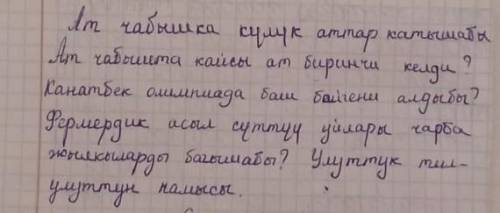 Ат чабышка күлүк аттар катышабы
Ат чабышта кайсы ат биринчи келди?
Канатбек олимпиада баш байгени алдыбы?
Фермердик асыл сүттүү уйлары чарба
жылкыларды багышабы? Улуттук тил-
улуттун намысы.